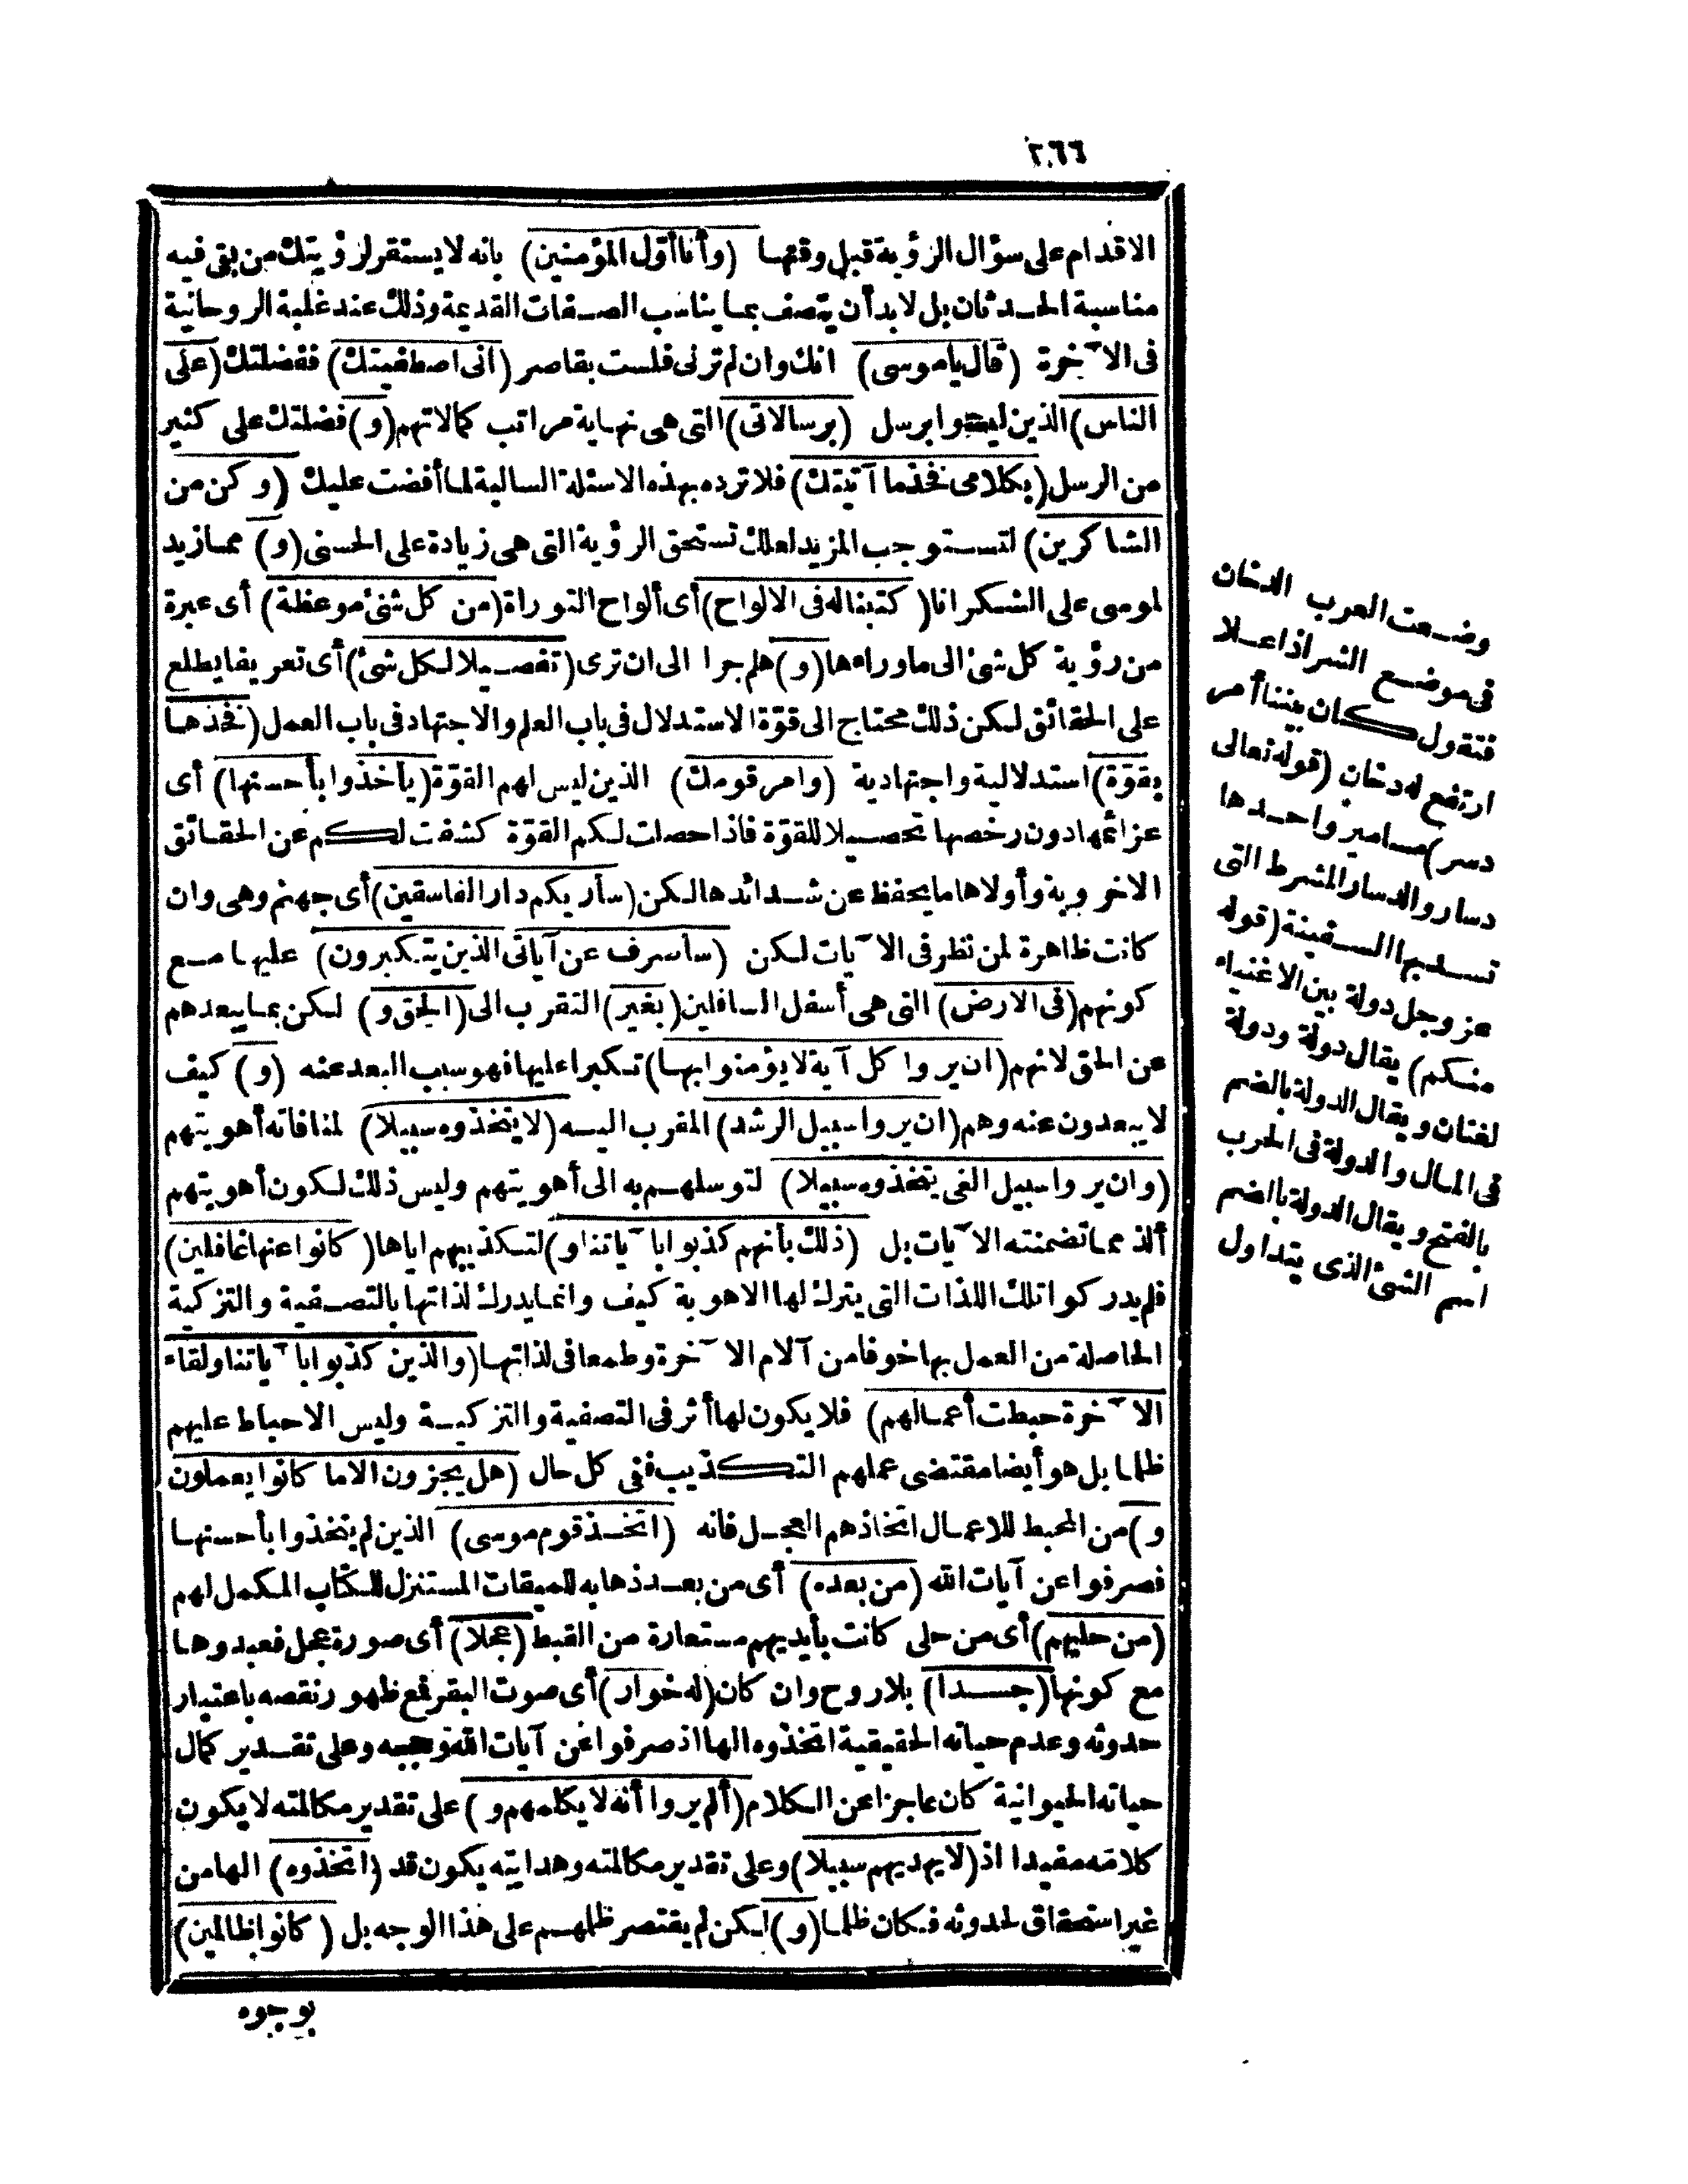 ٢٦٦
الاقدام على سؤال الرؤية قبل وقتها (وأنا أوّل المؤمنين) بانه لا يستقر لرؤيتك من بقى فيه
مناسبة الحدثان بل لا بد أن يتصف بما يناسب الصفات القديمة وذلك عند غلبة الروحانية
فى الآخرة (قال ياموسى) انك وان لم ترنى فلست بقاصر (انى اصطفيتك) ففضلتك (على
الناس) الذين ليسوا برسل (برسالاتى) التى هى نهاية مراتب كمالاتهم (و) فضلتك على كثير
من الرسل (بكلامى فخذ ما آتيتك) فلا ترده بهذه الاسئلة السالبة لما أفضت عليك (وكن من
الشاكرين) لتستوجب المزيد لعلك تستحق الرؤية التى هى زيادة على الحسنى (و) مما زيد
لموسى على الشكر انا (كتبنا له فى الالواح) أى ألواح التوراة (من كل شئ موعظة) أى عبرة
من رؤية كل شئ الى ما وراءها (و) هلم جرا الى ان ترى (تفصيلا لكل شئ) أى تعريفا يطلع
على الحقائق لكن ذلك محتاج الى قوّة الاستدلال فى باب العلم والاجتهاد فى باب العمل (فخذها
بقوّة) استدلالية واجتهادية (وامر قومك) الذين ليس لهم القوّة (يأخذوا بأحسنها) أى
عزائمها دون رخصها تحصيلا للقوّة فاذا حصلت لكم القوّة كشفت لكم عن الحقائق
الاخروية وأولاها ما يحفظ عن شدائدها لكن (سأريكم دار الفاسقين) أى جهنم وهى وان
كانت ظاهرة لمن نظر فى الآيات لكن (سأصرف عن آياتى الذين يتكبرون) عليها مع
كونهم (فى الارض) التى هى أسفل السافلين (بغير) التقرب الى (الحق و) لكن بما يبعدهم
عن الحق لانهم (ان يروا كل آية لا يؤمنوا بها) تكبرا عليها فهو سبب البعد عنه (و) كيف
لا يبعدون عنه وهم (ان يروا سبيل الرشد) المقرب اليه (لا يتخذوه سبيلا) لمنافاته أهويتهم
(وان يروا سبيل الغى يتخذوه سبيلا) لتوسلهم به الى أهويتهم وليس ذلك لكون أهويتهم
ألذ مما تضمنته الآيات بل (ذلك بأنهم كذبوا بآياتنا و) لتكذيبهم اياها (كانوا عنها غافلين)
فلم يدركوا تلك اللذات التى يترك لها الاهوية كيف وانما يدرك لذاتها بالتصفية والتزكية
الحاصلة من العمل بها خوفا من آلام الآخرة وطمعا فى لذاتها (والذين كذبوا بآياتنا ولقاء
الآخرة حبطت أعمالهم) فلا يكون لها أثر فى التصفية والتزكية وليس الاحباط عليهم
ظلما بل هو أيضا مقتضى عملهم التكذيب ففى كل حال (هل يجزون الا ما كانوا يعملون
و) من المحبط للاعمال اتخاذهم العجل فانه (اتخذ قوم موسى) الذين لم يتخذوا بأحسنها
فصرفوا عن آيات الله (من بعده) أى من بعد ذهابه للميقات المستنزل للكتاب المكمل لهم
(من حليهم) أى من حلى كانت بأيديهم مستعارة من القبط (عجلا) أى صورة عجل فعبدوها
مع كونها (جسدا) بلا روح وان كان (له خوار) أى صوت البقر فمع ظهور نقصه باعتبار
حدوثه وعدم حياته الحقيقية اتخذوه الها اذ صرفوا عن آيات الله وحججه وعلى تقدير كمال
حياته الحيوانية كان عاجزا عن الكلام (ألم يروا أنه لا يكلمهم و) على تقدير مكالمته لا يكون
كلامه مفيدا اذ (لا يهديهم سبيلا) وعلى تقدير مكالمته وهدايته يكون قد (اتخذوه) الها من
غير استحقاق لحدوثه فكان ظلما (و) لكن لم يقتصر ظلمهم على هذا الوجه بل (كانوا ظالمين)
بوجوه
وضعت العرب الدخان
فى موضع الشر اذا علا
فتقول كان بيننا أمر
ارتفع له دخان (قوله تعالى
دسر) مسامير واحدها
دسار والدسار الشرط التى
تسد بها السفينة (قوله
عز وجل دولة بين الاغنياء
منكم) يقال دولة ودولة
لغتان ويقال الدولة بالضم
فى المال والدولة فى الحرب
بالفتح ويقال الدولة بالضم
اسم الشئ الذى يتداول